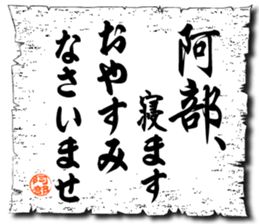 阿部、
寝ます
おやすみ
なさいませ